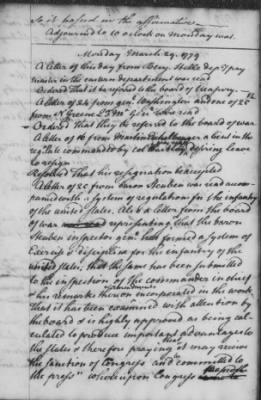 So it passed in the affirmative.
Adjourned to 10 o'clock on monday
Monday March 29. 1779
A letter of this day from Benj. Stelle dep y pay
master in the eastern department was read
Ordered That it be referred to the board of treasury.
A letter of 24 from gen! Washington and one of 25
from N Greene Q M Gen! were read
Ordered That they be referred to the board of war
A letter of from a lieut in the
regt late commanded by col desiring leave
to resign
Resolved That his resignation be accepted
A letter of 25 from baron Steuben was read accom
panied with a System of regulations for the infantry
of the united states, Also a letter from the board
of war representing, that the baron
Steuben inspector gen! had formed a System of
Exercise & discipline for the infantry of the
united states, that the same has been submitted
to the inspection of the commander in chief
& his remarks thereon incorporated in the work
That it has been examined with attention by
the board & is highly approved as being cal
culated to produce important advantages to
the States & therefore praying that it may receive
the sanction of Congress and be committed to
the press whereupon Congress